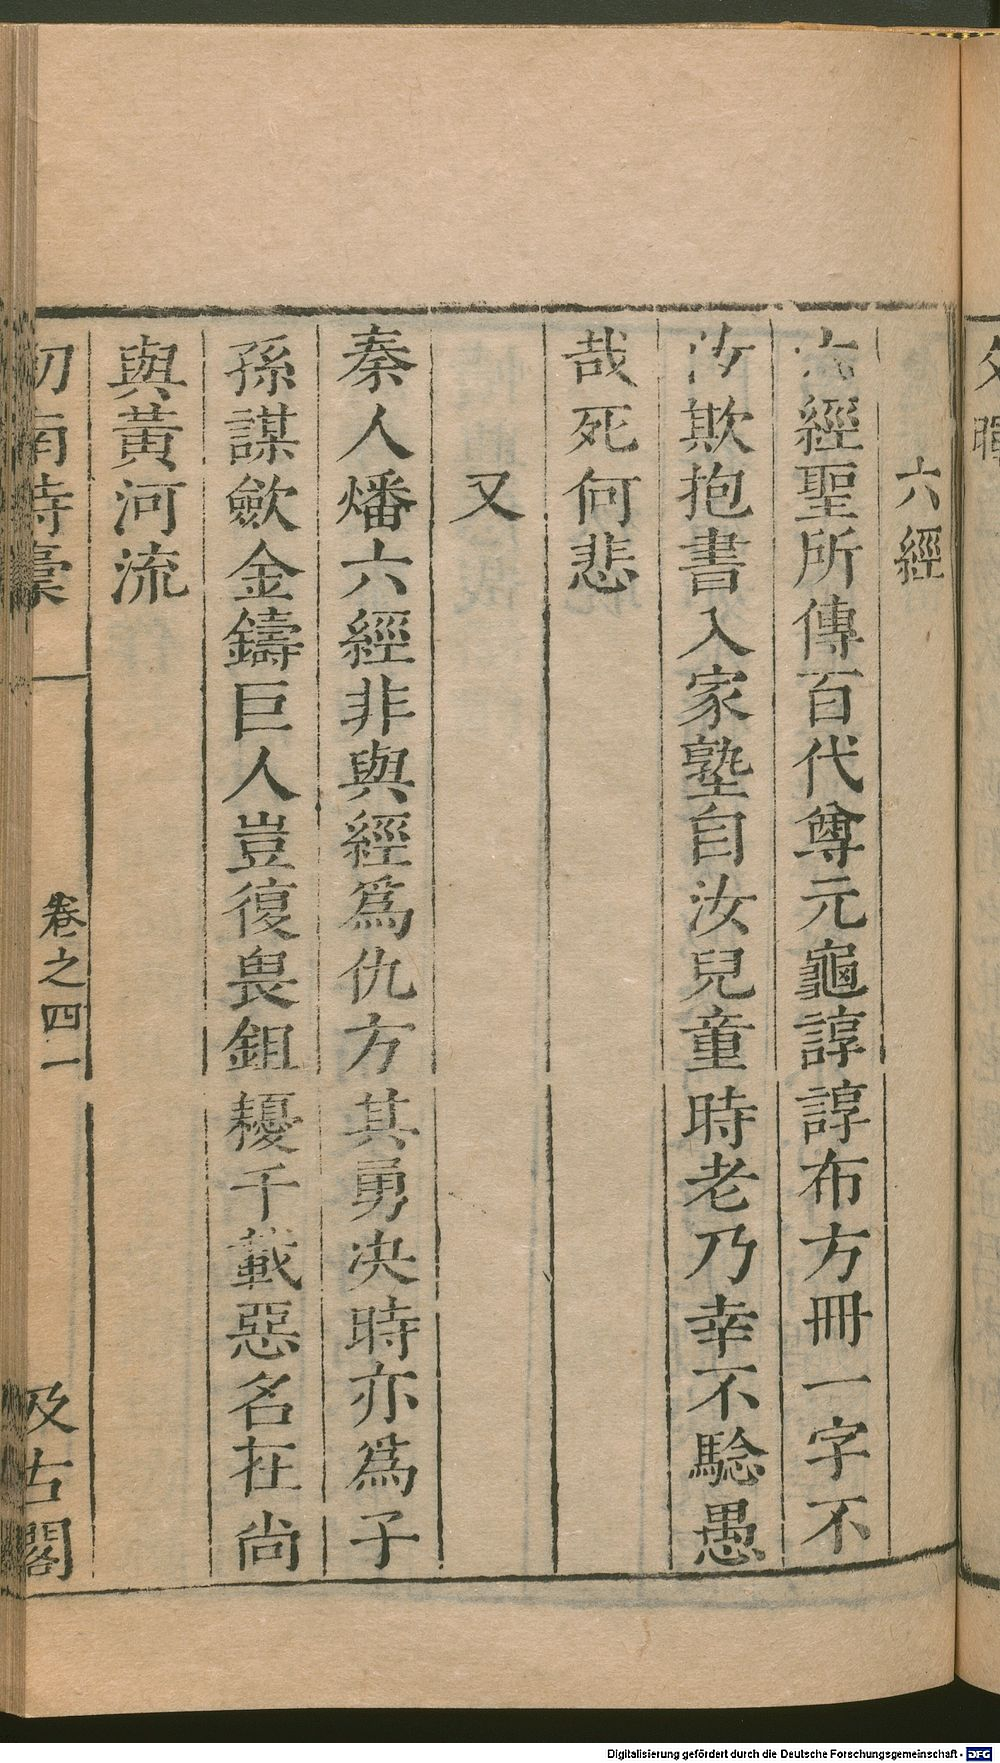 六經
六經聖所傳百代尊元龜諄諄布方冊一字不
汝欺抱書入家塾自汝兒童時老乃幸不騐愚
哉死何悲
又
秦人燔六經非與經爲仇方其勇决時亦爲子
孫謀歛金鑄巨人豈復畏鉏耰千載惡名在尚
與黃河流
劒南詩稾
卷之四一
汲古閣
Digitalisierung gefördert durch die Deutsche Forschungsgemeinschaft - DFG